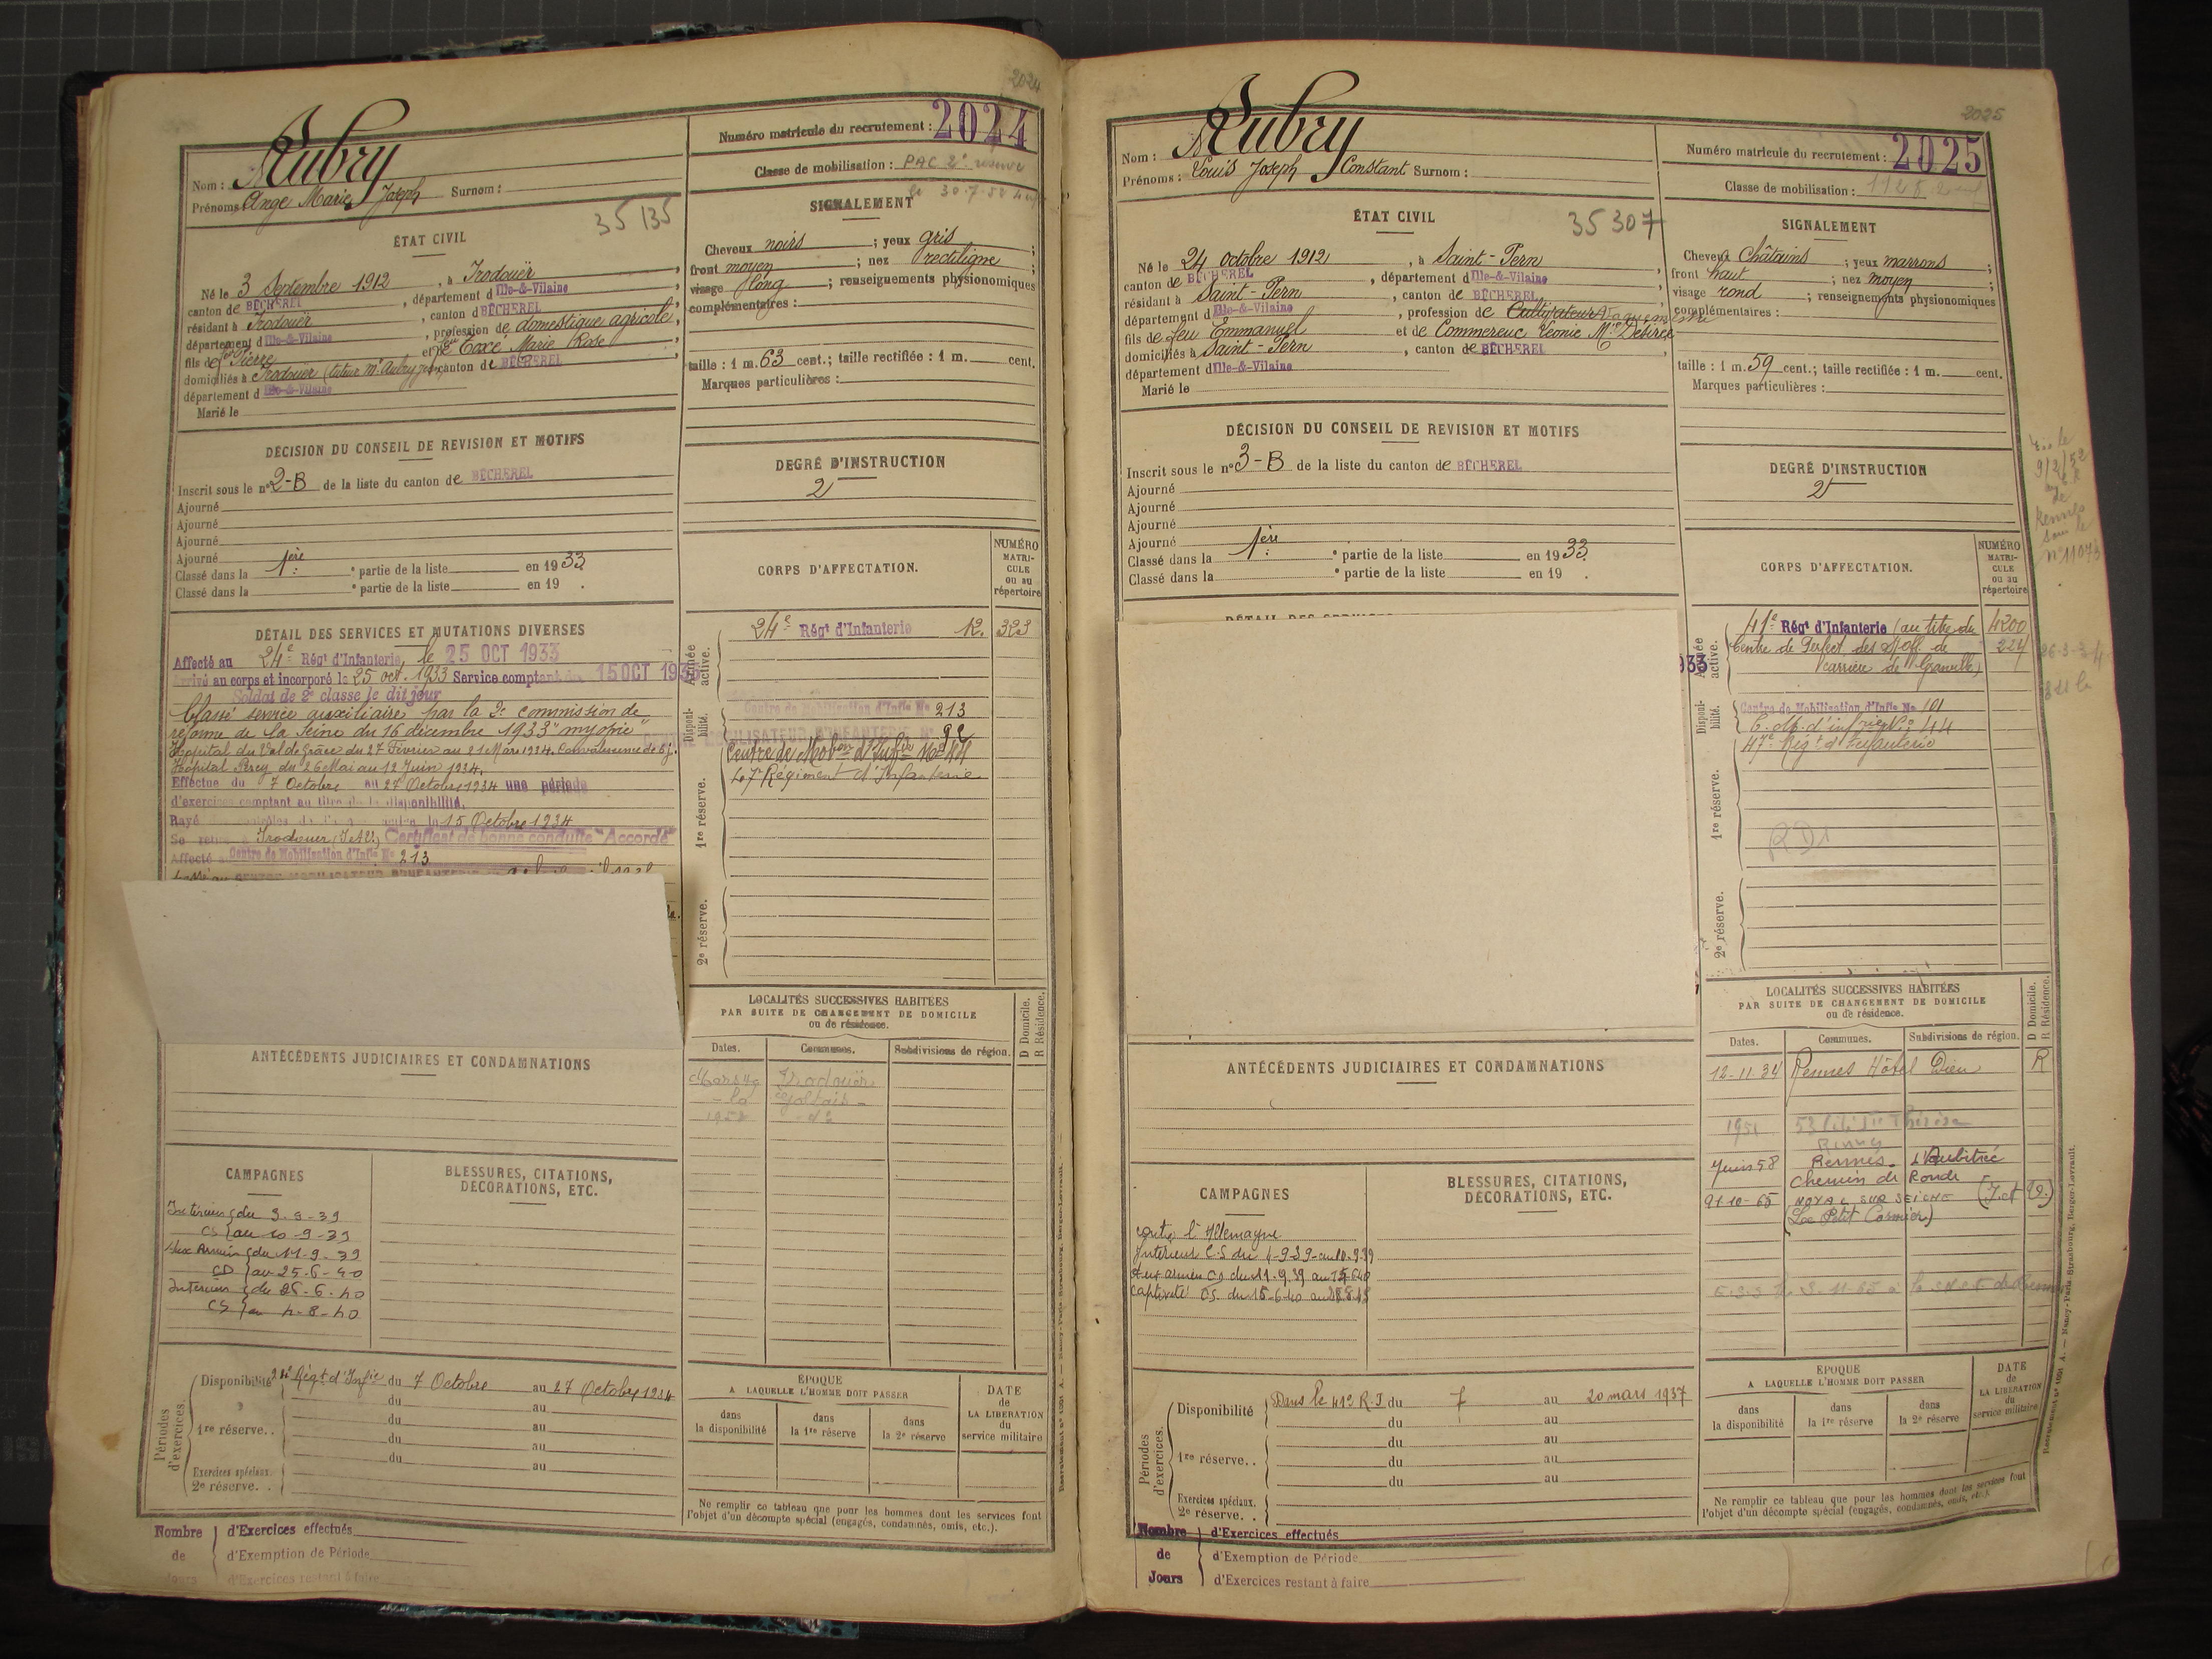 2024
Numéro matricule du recrutement : 2024
Classe de mobilisation : PAC 2e réserve
le 30.7.52
Nom : Aubry
Prénoms : Ange Marie Joseph Surnom :
35 135
ÉTAT CIVIL
Né le 3 Septembre 1912, à Irodouër,
canton de BÉCHEREL, département d'Ille-&-Vilaine
résidant à Irodouër, canton d BÉCHEREL
département d Ille-&-Vilaine, profession de domestique agricole,
fils de feu Pierre et de feue Marie Rose
domiciliés à Irodouër (tuteur Mr Aubry), canton de BÉCHEREL
département d Ille-&-Vilaine
Marié le
SIGNALEMENT
Cheveux noirs ; yeux gris ;
front moyen ; nez rectiligne ;
visage long ; renseignements physionomiques
complémentaires :
taille : 1 m. 63 cent.; taille rectifiée : 1 m. cent.
Marques particulières :
DÉCISION DU CONSEIL DE REVISION ET MOTIFS
Inscrit sous le n° 2-B de la liste du canton de BÉCHEREL
Ajourné
Ajourné
Ajourné
Ajourné
Classé dans la 1ère ° partie de la liste en 1933
Classé dans la ° partie de la liste en 19 .
DEGRÉ D'INSTRUCTION
2
CORPS D'AFFECTATION.
NUMÉRO
MATRI-
CULE
ou au
répertoire
Armée active.
24e Régt d'Infanterie 12. 323
Disponi-
bilité.
Centre de Mobilisation d'Infie No 213
Centre de Mobon d'Infie No 44
47e Régiment d'Infanterie
1re réserve.
2e réserve.
DÉTAIL DES SERVICES ET MUTATIONS DIVERSES
Affecté au 24e Régt d'Infanterie, le 25 OCT 1933
Arrivé au corps et incorporé le 25 oct. 1933 Service comptant du 15 OCT 1933
Soldat de 2e classe le dit jour
Classé service auxiliaire par la 2e commission de
réforme de la Seine du 16 décembre 1933 "myopie"
Hôpital du Val de Grâce du 27 Février au 21 Mars 1934. Convalescence de
Hôpital Percy du 26 Mai au 12 Juin 1934.
Effectue du 7 Octobre au 27 Octobre 1934 une période
d'exercices comptant au titre de la disponibilité.
Rayé des contrôles le 15 Octobre 1934
Se retire à Irodouer (I et V.) Certificat de bonne conduite "Accordé"
Affecté Centre de Mobilisation d'Infie No 213
LOCALITÉS SUCCESSIVES HABITÉES
PAR SUITE DE CHANGEMENT DE DOMICILE
ou de résidence.
D Domicile.
R Résidence.
Dates. Communes. Subdivisions de région.
Irodouër
1952
ANTÉCÉDENTS JUDICIAIRES ET CONDAMNATIONS
CAMPAGNES
BLESSURES, CITATIONS,
DÉCORATIONS, ETC.
Intérieur du 3-9-39
CS au 10-9-39
Aux Armées du 11-9-39
CD au 25-6-40
Intérieur du 26-6-40
CS au 4-8-40
Périodes
d'exercices.
Disponibilité 24e Régt d'Infie du 7 Octobre au 27 Octobre 1934
du au
1re réserve. . du au
du au
du au
Exercices spéciaux.
2e réserve. .
ÉPOQUE
A LAQUELLE L'HOMME DOIT PASSER
DATE
de
LA LIBERATION
du
service militaire
dans
la disponibilité
dans
la 1re réserve
dans
la 2e réserve
Ne remplir ce tableau que pour les hommes dont les services font
l'objet d'un décompte spécial (engagés, condamnés, omis, etc.).
Nombre d'Exercices effectués
de d'Exemption de Période
Jours d'Exercices restant à faire
2025
Numéro matricule du recrutement : 2025
Classe de mobilisation : 1928
Nom : Aubry
Prénoms : Louis Joseph Constant Surnom :
35 307
ÉTAT CIVIL
Né le 24 octobre 1912, à Saint-Pern,
canton de BÉCHEREL, département d'Ille-&-Vilaine
résidant à Saint-Pern, canton de BÉCHEREL
département d'Ille-&-Vilaine, profession de Cultivateur
fils de feu Emmanuel et de Commereuc Léonie Mie Désirée
domiciliés à Saint-Pern, canton de BÉCHEREL
département d'Ille-&-Vilaine
Marié le
SIGNALEMENT
Cheveux Châtains ; yeux marrons ;
front haut ; nez moyen ;
visage rond ; renseignements physionomiques
complémentaires :
taille : 1 m. 59 cent.; taille rectifiée : 1 m. cent.
Marques particulières :
DÉCISION DU CONSEIL DE REVISION ET MOTIFS
Inscrit sous le n° 3-B de la liste du canton de BÉCHEREL
Ajourné
Ajourné
Ajourné
Ajourné
Classé dans la 1ère ° partie de la liste en 1933.
Classé dans la ° partie de la liste en 19 .
DEGRÉ D'INSTRUCTION
2
le
9/2/52
de
Rennes
sous le
n° 11073
CORPS D'AFFECTATION.
NUMÉRO
MATRI-
CULE
ou au
répertoire
Armée active.
41e Régt d'Infanterie (au titre du 4200
Centre de Perfect. des s/off. de 224
carrière de Granville)
Disponi-
bilité.
Centre de Mobilisation d'Infie No 101
C. M. d'infie No 44
47e Régt d'Infanterie
1re réserve.
RD1
2e réserve.
LOCALITÉS SUCCESSIVES HABITÉES
PAR SUITE DE CHANGEMENT DE DOMICILE
ou de résidence.
D Domicile.
R Résidence.
Dates. Communes. Subdivisions de région.
12-11-34 Rennes Hôtel Dieu R
1951 53
Rennes
Juin 58 Rennes.
Chemin de Ronde
21-10-65 NOYAL SUR SEICHE (I. et V.)
(Le Petit Cormier)
ANTÉCÉDENTS JUDICIAIRES ET CONDAMNATIONS
CAMPAGNES
BLESSURES, CITATIONS,
DÉCORATIONS, ETC.
contre l'Allemagne
Intérieur C.S du 4-9-39 au 10.9.39
Aux armées CD du 11.9.39 au
captivité CS. du 15-6-40 au
Périodes
d'exercices.
Disponibilité Dans le 41e R.I. du 7 au 20 mars 1937
du au
1re réserve. . du au
du au
du au
Exercices spéciaux.
2e réserve. .
ÉPOQUE
A LAQUELLE L'HOMME DOIT PASSER
DATE
de
LA LIBÉRATION
du
service militaire
dans
la disponibilité
dans
la 1re réserve
dans
la 2e réserve
Ne remplir ce tableau que pour les hommes dont les services font
l'objet d'un décompte spécial (engagés, condamnés, omis, etc.).
Nombre d'Exercices effectués
de d'Exemption de Période
Jours d'Exercices restant à faire